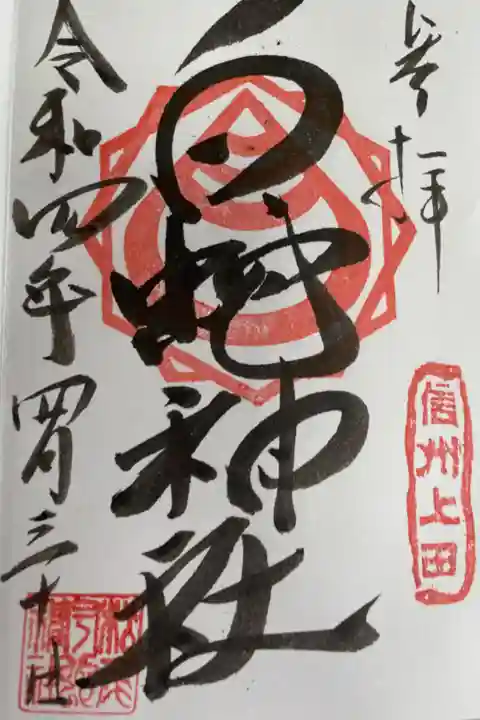 奉拝
信州上田
白蛇神社
令和四年四月三十